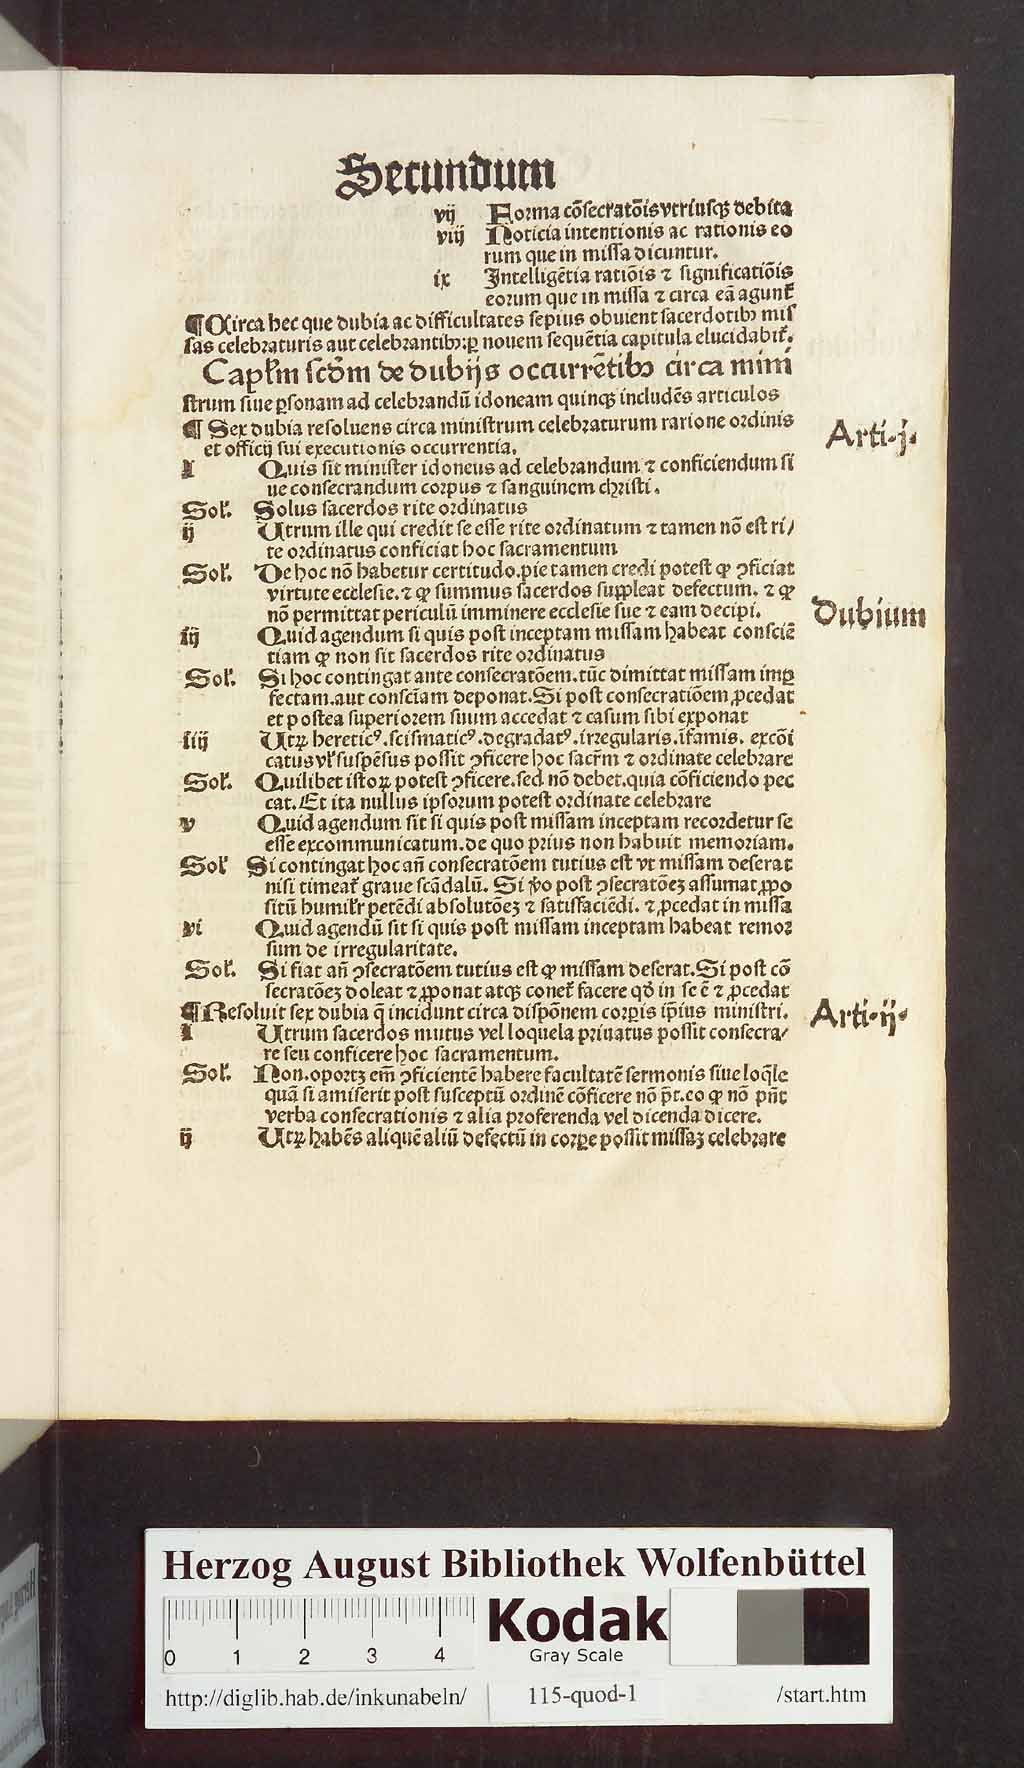 Secundum
vij Forma cõsecratõis vtriusqꝫ debita
viij Noticia intentionis ac rationis eo
rum que in missa dicuntur.
ix Intelligẽtia ratiõis ⁊ significatiõis
eorum que in missa ⁊ circa eã agunt᷑
¶ Circa hec que dubia ac difficultates sepius obuient sacerdotibꝫ mis
sas celebraturis aut celebrantibꝫ: ꝑ nouem sequẽtia capitula elucidabit᷑.
Capłm scd̃m de dubijs occurrẽtibꝫ circa mini
strum siue ꝑsonam ad celebrandũ idoneam quinqꝫ includẽs articulos
¶ Sex dubia resoluens circa ministrum celebraturum rarione ordinis
et officij sui executionis occurrentia.
Arti.j.
i Quis sit minister idoneus ad celebrandum ⁊ conficiendum si
ue consecrandum corpus ⁊ sanguinem christi.
Soł. Solus sacerdos rite ordinatus
ij Utrum ille qui credit se esse rite ordinatum ⁊ tamen nõ est ri/
te ordinatus conficiat hoc sacramentum
Soł. De hoc nõ habetur certitudo. pie tamen credi potest ꝙ ꝯficiat
virtute ecclesie. ⁊ ꝙ summus sacerdos suppleat defectum. ⁊ ꝙ
nõ permittat periculũ imminere ecclesie sue ⁊ eam decipi.
Dubium
iij Quid agendum si quis post inceptam missam habeat consciẽ
tiam ꝙ non sit sacerdos rite ordinatus
Soł. Si hoc contingat ante consecratõem. tũc dimittat missam imꝑ
fectam. aut consciẽam deponat. Si post consecratiõem ꝓcedat
et postea superiorem suum accedat ⁊ casum sibi exponat
iiij Utꝝ hereticꝰ. scismaticꝰ. degradatꝰ. irregularis. ĩfamis. excõi
catus vł suspẽsus possit ꝯficere hoc sacr̃m ⁊ ordinate celebrare
Soł. Quilibet istoꝝ potest ꝯficere. sed nõ debet. quia cõficiendo pec
cat. Et ita nullus ipsorum potest ordinate celebrare
v Quid agendum sit si quis post missam inceptam recordetur se
esse excommunicatum. de quo prius non habuit memoriam.
Soł Si contingat hoc añ consecratõem tutius est vt missam deserat
nisi timeat᷑ graue scãdalũ. Si v̾o post ꝯsecratõeꝫ assumat ꝓpo
sitũ humilr̃ petẽdi absolutõeꝫ ⁊ satisfaciẽdi. ⁊ ꝓcedat in missa
vi Quid agendũ sit si quis post missam inceptam habeat remor
sum de irregularitate.
Soł. Si fiat añ ꝯsecratõem tutius est ꝙ missam deserat. Si post cõ
secratõeꝫ doleat ⁊ ꝓponat atqꝫ conet᷑ facere qd̾ in se ẽ ⁊ ꝓcedat
¶ Resoluit sex dubia q̃ incidunt circa dispõnem corꝑis ip̃ius ministri.
Arti.ij.
i Utrum sacerdos mutus vel loquela priuatus possit consecra/
re seu conficere hoc sacramentum.
Soł. Non. oportꝫ em̃ ꝯficientẽ habere facultatẽ sermonis siue loq̃le
quã si amiserit post susceptũ ordinẽ cõficere nõ põt. eo ꝙ nõ pñt
verba consecrationis ⁊ alia proferenda vel dicenda dicere.
ij Utꝝ habẽs aliquẽ aliũ defectũ in corꝑe possit missaꝫ celebrare
Herzog August Bibliothek Wolfenbüttel
0 1 2 3 4
Kodak
Gray Scale
http://diglib.hab.de/inkunabeln/ 115-quod-1 /start.htm